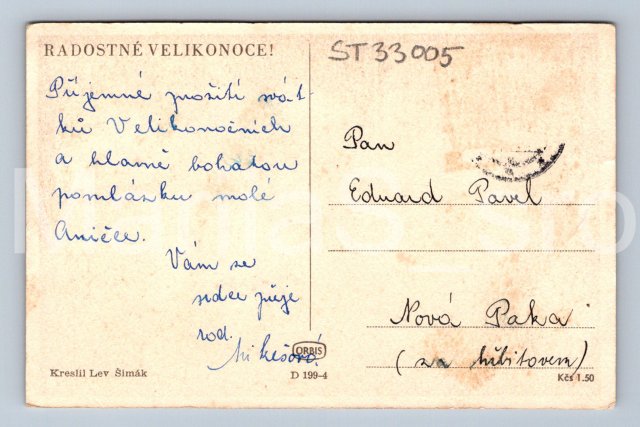 RADOSTNÉ VELIKONOCE!
Příjemné prožití svát-
ků Velikonočních
a hlavně bohatou
pomlázku malé
Aničce.
Vám ze
srdce přeje
rod.
Mikešová
Kreslil Lev Šimák
ORBIS
D 199-4
ST33005
Pan
Eduard Pavel
Nová Paka
(za hřbitovem)
Kčs 1.50